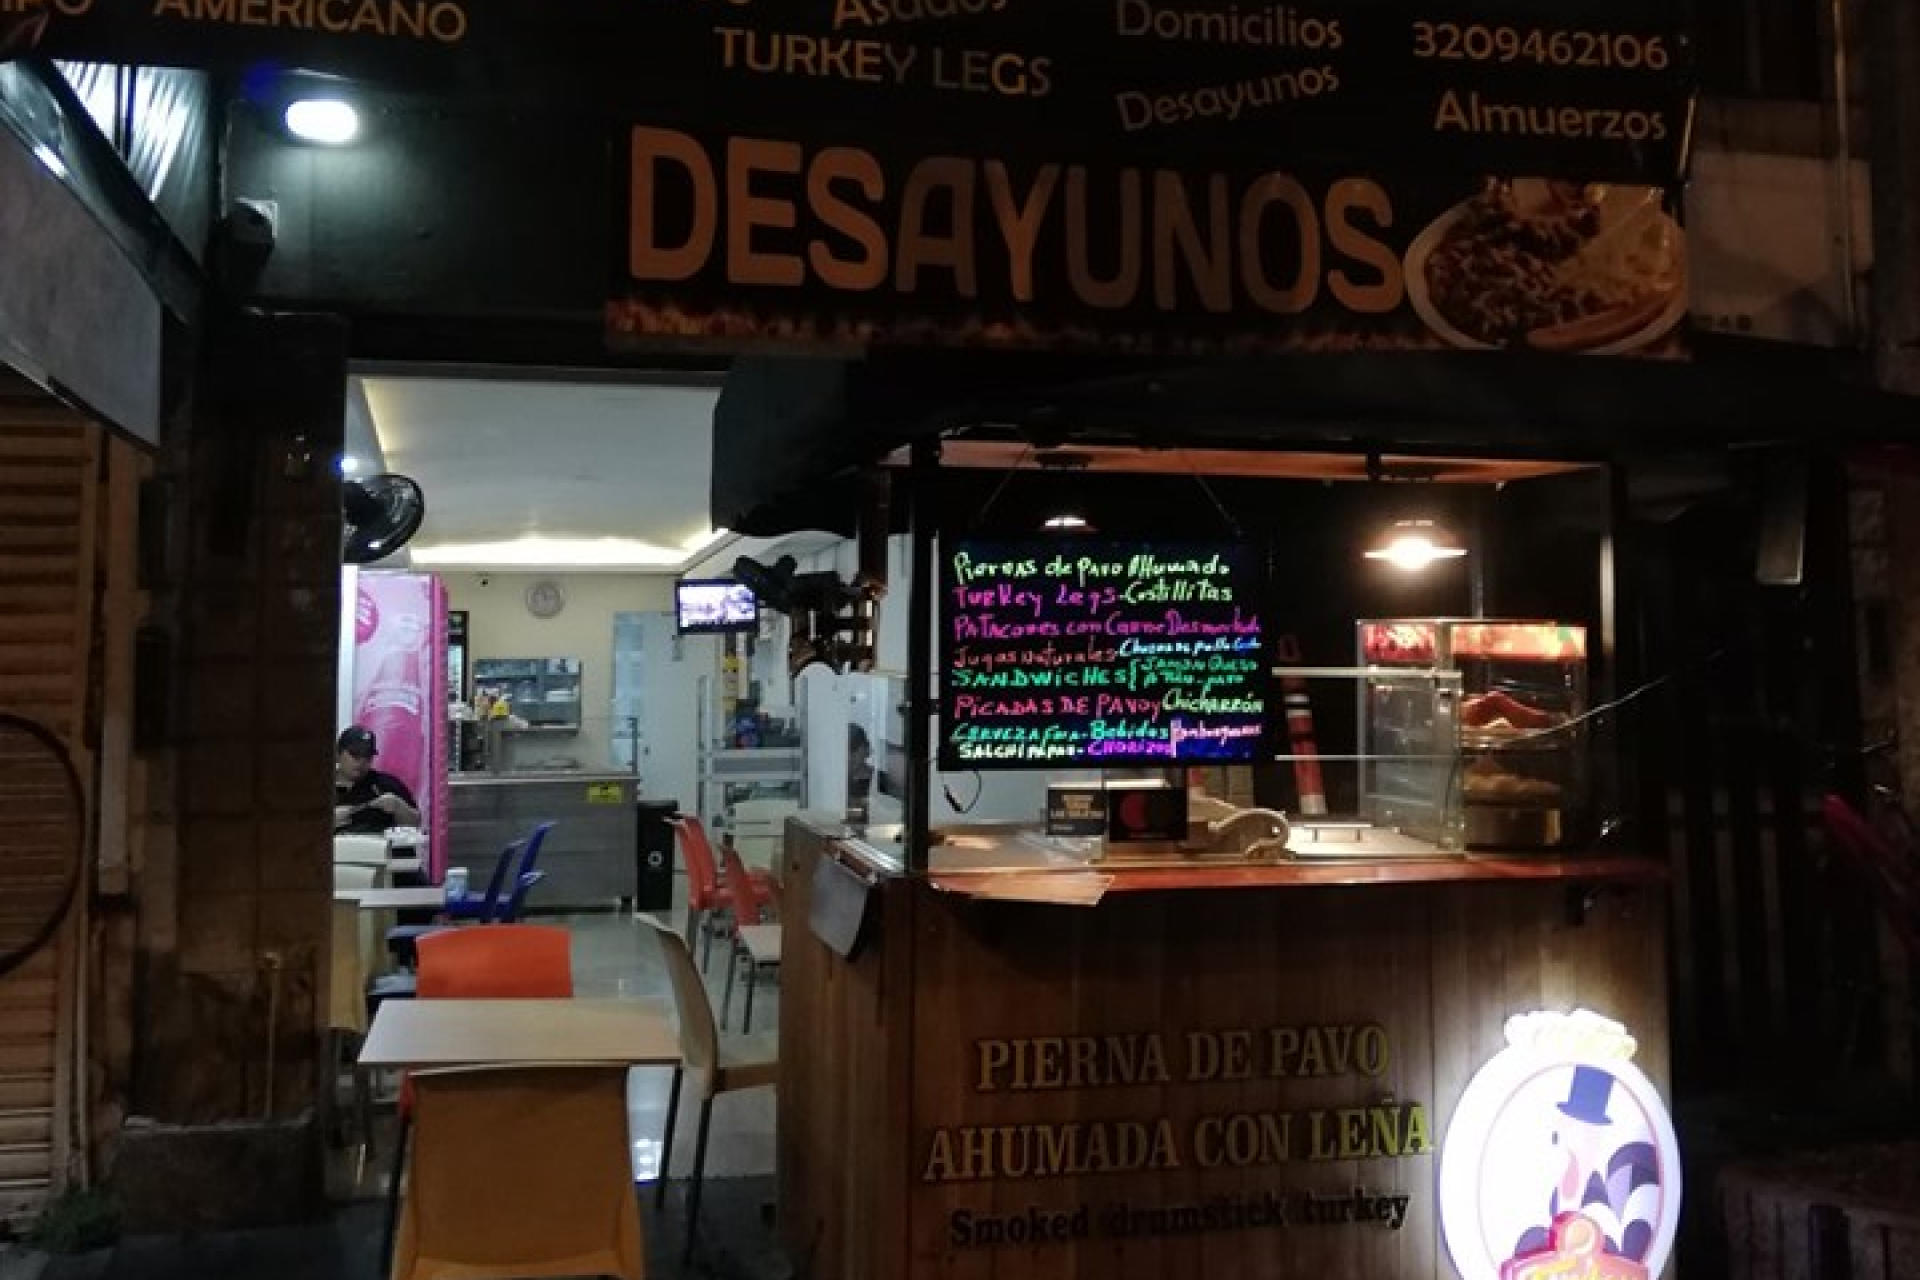 AMERICANO
Asados
TURKEY LEGS
Domicilios
3209462106
Desayunos
Almuerzos
DESAYUNOS
Piernas de PAVO AHumado
TURKey Legs - CostilliTas
PATACONES con Carne Desmechada
Jugos Naturales
SANDWICHES { JAMON QUESO
PICADAS DE PAVO y Chicharrón
CERVEZA Fria - Bebidas Hamburguesas
SALCHIPAPAS - CHORIZOS
PIERNA DE PAVO
AHUMADA CON LEÑA
Smoked drumstick turkey